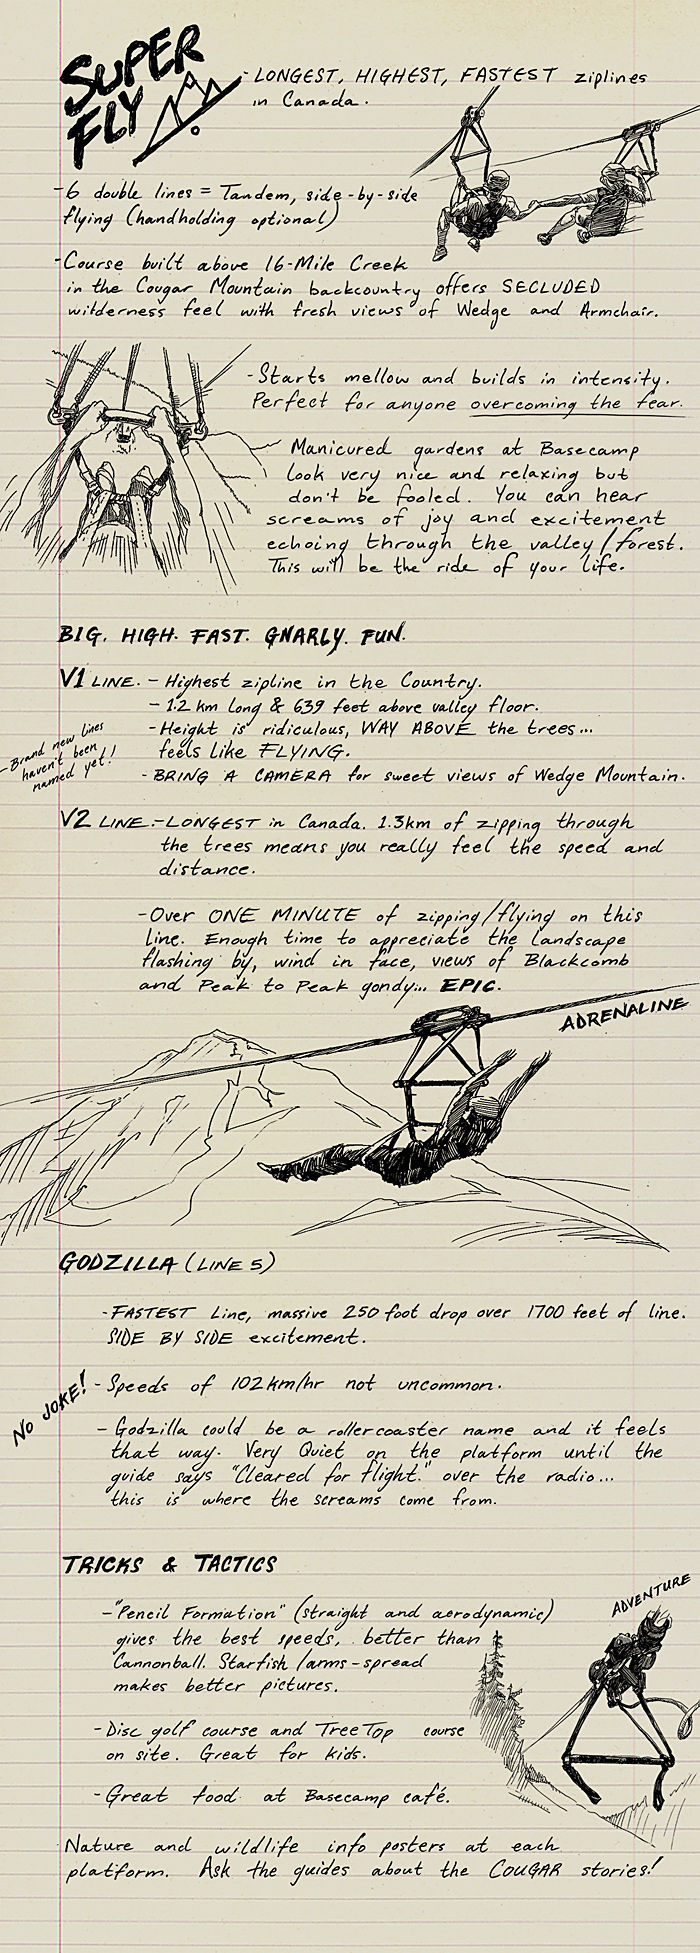 SUPER
FLY
- LONGEST, HIGHEST, FASTEST ziplines
in Canada.
- 6 double lines = Tandem, side-by-side
flying (handholding optional)
- Course built above 16-Mile Creek
in the Cougar Mountain backcountry offers SECLUDED
wilderness feel with fresh views of Wedge and Armchair.
- Starts mellow and builds in intensity.
Perfect for anyone overcoming the fear.
Manicured gardens at Basecamp
look very nice and relaxing but
don't be fooled. You can hear
screams of joy and excitement
echoing through the valley/forest.
This will be the ride of your life.
BIG. HIGH. FAST. GNARLY. FUN.
V1 LINE. - Highest zipline in the Country.
- 1.2 km long & 639 feet above valley floor.
- Height is ridiculous, WAY ABOVE the trees...
feels like FLYING.
- BRING A CAMERA for sweet views of Wedge Mountain.
- Brand new lines
haven't been
named yet!
V2 LINE. - LONGEST in Canada. 1.3km of zipping through
the trees means you really feel the speed and
distance.
- Over ONE MINUTE of zipping/flying on this
line. Enough time to appreciate the landscape
flashing by, wind in face, views of Blackcomb
and Peak to Peak gondy... EPIC.
ADRENALINE
GODZILLA (LINE 5)
- FASTEST Line, massive 250 foot drop over 1700 feet of line.
SIDE BY SIDE excitement.
NO JOKE!
- Speeds of 102 km/hr not uncommon.
- Godzilla could be a rollercoaster name and it feels
that way. Very Quiet on the platform until the
guide says "Cleared for flight." over the radio...
this is where the screams come from.
TRICKS & TACTICS
- "Pencil Formation" (straight and aerodynamic)
gives the best speeds, better than
Cannonball. Starfish/arms-spread
makes better pictures.
ADVENTURE
- Disc golf course and TreeTop course
on site. Great for kids.
- Great food at Basecamp café.
Nature and wildlife info posters at each
platform. Ask the guides about the COUGAR stories!